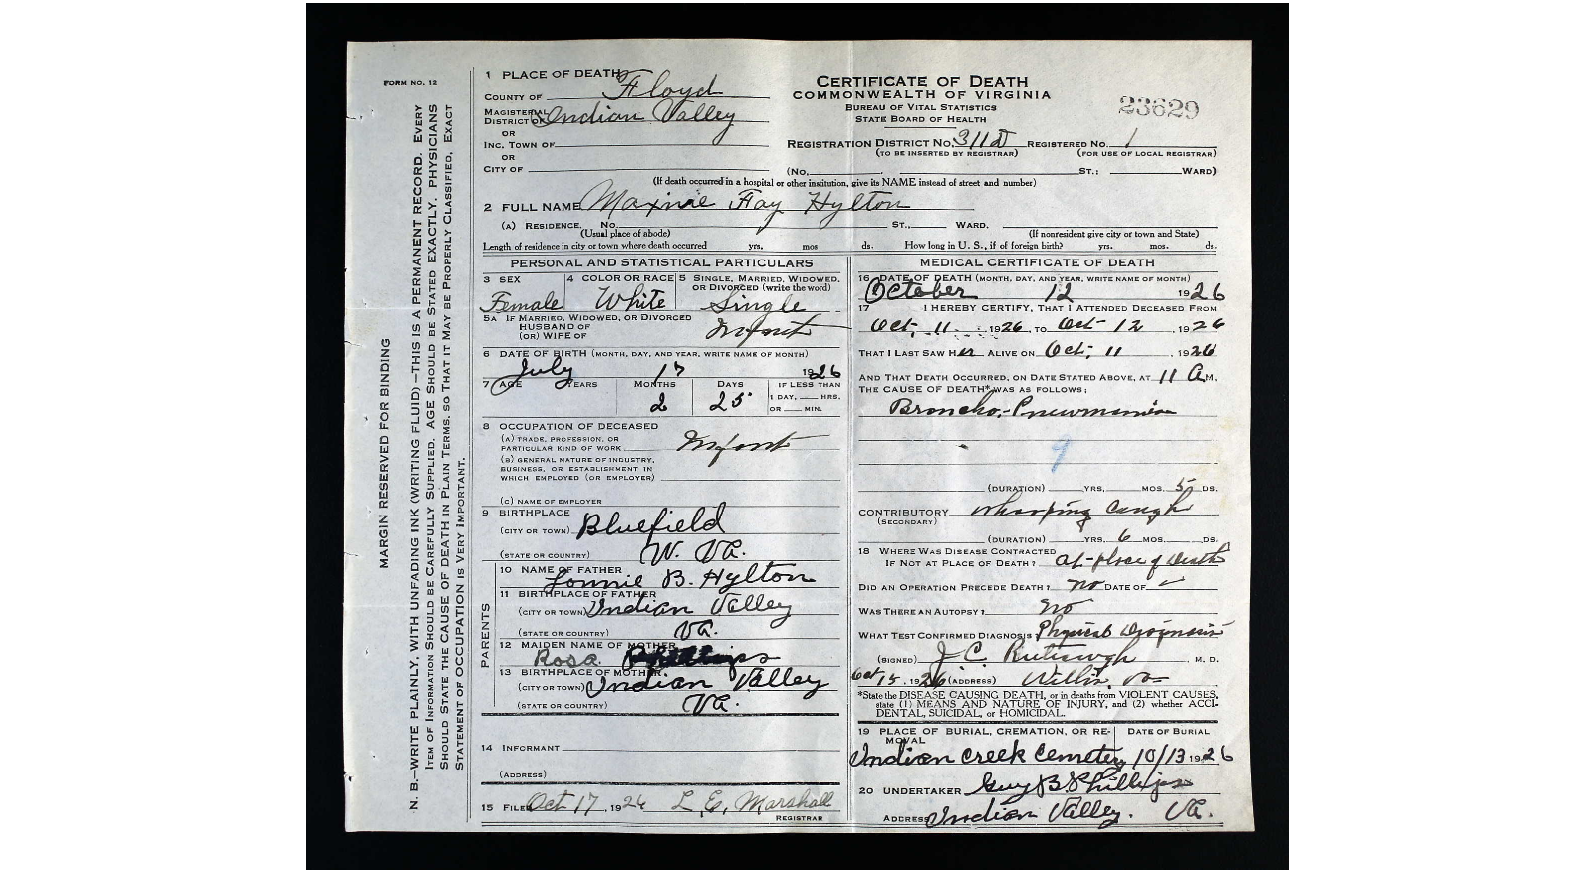 FORM NO. 12
MARGIN RESERVED FOR BINDING
N. B.—WRITE PLAINLY, WITH UNFADING INK (WRITING FLUID)—THIS IS A PERMANENT RECORD. EVERY
ITEM OF INFORMATION SHOULD BE CAREFULLY SUPPLIED. AGE SHOULD BE STATED EXACTLY. PHYSICIANS
SHOULD STATE THE CAUSE OF DEATH IN PLAIN TERMS, SO THAT IT MAY BE PROPERLY CLASSIFIED. EXACT
STATEMENT OF OCCUPATION IS VERY IMPORTANT.
CERTIFICATE OF DEATH
COMMONWEALTH OF VIRGINIA
BUREAU OF VITAL STATISTICS
STATE BOARD OF HEALTH
23629
1 PLACE OF DEATH
COUNTY OF Floyd
MAGISTERIAL DISTRICT OF Indian Valley
OR
INC. TOWN OF
OR
CITY OF
REGISTRATION DISTRICT NO. 311D REGISTERED NO. 1
(TO BE INSERTED BY REGISTRAR) (FOR USE OF LOCAL REGISTRAR)
(NO. ST.; WARD)
(If death occurred in a hospital or other institution, give its NAME instead of street and number)
2 FULL NAME Maxine Fay Hylton
(A) RESIDENCE. No. ST., WARD.
(Usual place of abode) (If nonresident give city or town and State)
Length of residence in city or town where death occurred yrs. mos ds. How long in U. S., if of foreign birth? yrs. mos. ds.
PERSONAL AND STATISTICAL PARTICULARS
3 SEX 4 COLOR OR RACE 5 SINGLE, MARRIED, WIDOWED,
OR DIVORCED (write the word)
Female White Single
5A IF MARRIED, WIDOWED, OR DIVORCED
HUSBAND OF
(OR) WIFE OF Infant
6 DATE OF BIRTH (MONTH, DAY, AND YEAR, WRITE NAME OF MONTH)
July 17 1926
7 AGE YEARS MONTHS DAYS IF LESS THAN
1 DAY, HRS.
OR MIN.
2 25
8 OCCUPATION OF DECEASED
(A) TRADE, PROFESSION, OR
PARTICULAR KIND OF WORK Infant
(B) GENERAL NATURE OF INDUSTRY,
BUSINESS, OR ESTABLISHMENT IN
WHICH EMPLOYED (OR EMPLOYER)
(C) NAME OF EMPLOYER
9 BIRTHPLACE
(CITY OR TOWN) Bluefield
(STATE OR COUNTRY) W. VA.
PARENTS
10 NAME OF FATHER
Lonnie B. Hylton
11 BIRTHPLACE OF FATHER
(CITY OR TOWN) Indian Valley
(STATE OR COUNTRY) VA.
12 MAIDEN NAME OF MOTHER
Rosa
13 BIRTHPLACE OF MOTHER
(CITY OR TOWN) Indian Valley
(STATE OR COUNTRY) VA.
14 INFORMANT
(ADDRESS)
15 FILED Oct 17, 1926 L. E. Marshall
REGISTRAR
MEDICAL CERTIFICATE OF DEATH
16 DATE OF DEATH (MONTH, DAY, AND YEAR, WRITE NAME OF MONTH)
October 12 1926
17 I HEREBY CERTIFY, THAT I ATTENDED DECEASED FROM
Oct, 11, 1926, TO Oct- 12, 1926
THAT I LAST SAW Her ALIVE ON Oct, 11, 1926
AND THAT DEATH OCCURRED, ON DATE STATED ABOVE, AT 11 A M.
THE CAUSE OF DEATH* WAS AS FOLLOWS:
Broncho-Pneumonia
9
(DURATION) YRS. MOS. 5 DS.
CONTRIBUTORY Whooping Cough
(SECONDARY)
(DURATION) YRS. 6 MOS. DS.
18 WHERE WAS DISEASE CONTRACTED
IF NOT AT PLACE OF DEATH? at-place of Death
DID AN OPERATION PRECEDE DEATH? no DATE OF
WAS THERE AN AUTOPSY? no
WHAT TEST CONFIRMED DIAGNOSIS Physical Diagnosis
(SIGNED) J. C. M. D.
Oct 15, 1926 (ADDRESS) Willis, Va
*State the DISEASE CAUSING DEATH, or in deaths from VIOLENT CAUSES,
state (1) MEANS AND NATURE OF INJURY, and (2) whether ACCI-
DENTAL, SUICIDAL, or HOMICIDAL.
19 PLACE OF BURIAL, CREMATION, OR RE- DATE OF BURIAL
MOVAL
Indian Creek Cemetery 10/13 1926
20 UNDERTAKER Guy B. Phillips
ADDRESS Indian Valley. VA.